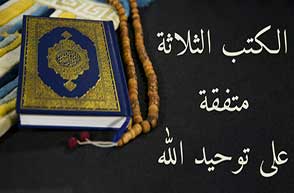 الكتب الثلاثة
متفقة
على توحيد الله